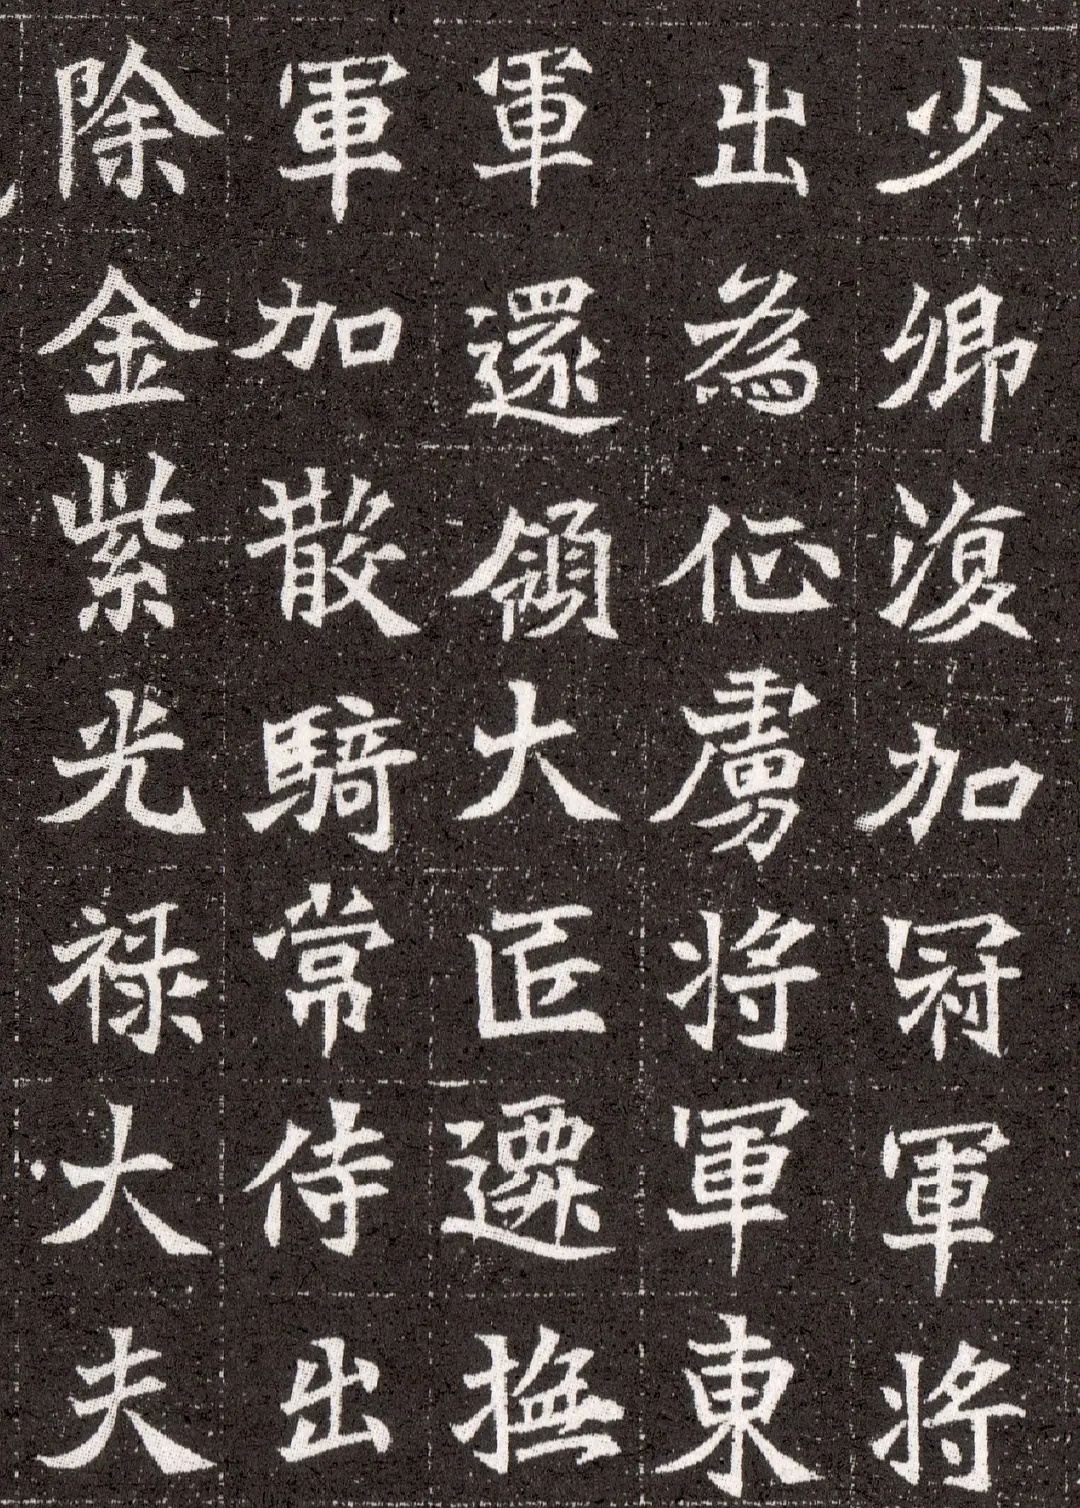 少卿復加冠軍將
出為征虜將軍東
軍還領大匠遷撫
軍加散騎常侍出
除金紫光祿大夫